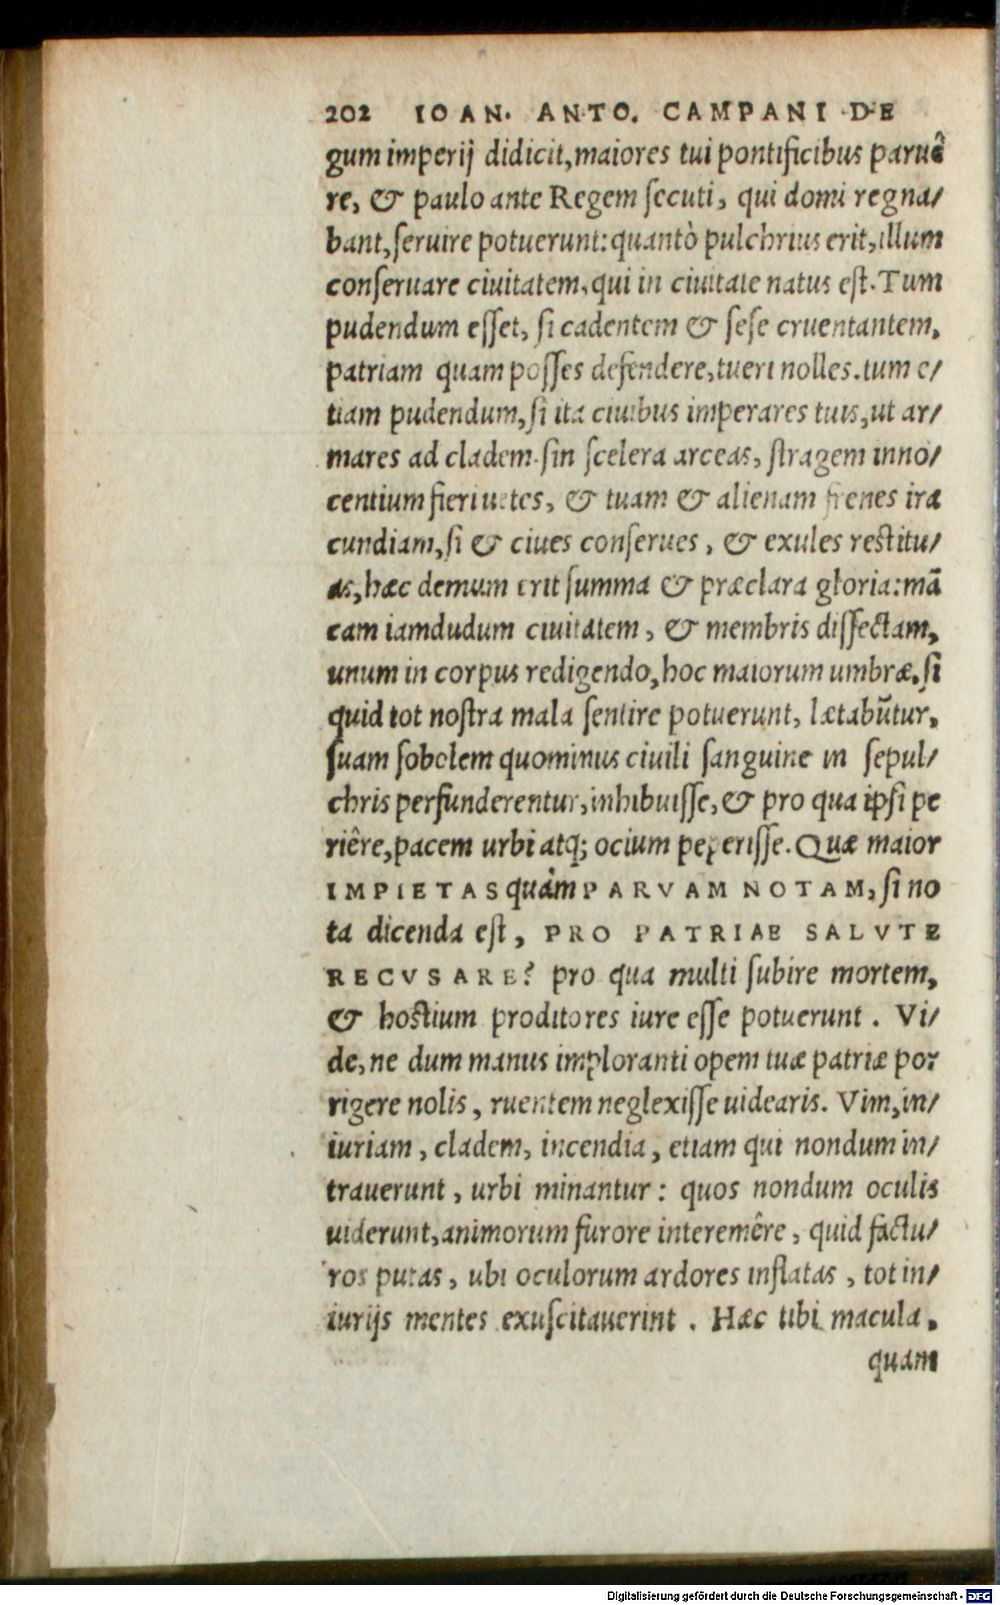 202 IOAN. ANTO. CAMPANI DE
gum imperij didicit, maiores tui pontificibus paruê
re, & paulo ante Regem secuti, qui domi regna/
bant, seruire potuerunt: quantò pulchrius erit, illum
conseruare ciuitatem, qui in ciuitate natus est. Tum
pudendum esset, si cadentem & sese cruentantem,
patriam quam posses defendere, tueri nolles. tum e/
tiam pudendum, si ita ciuibus imperares tuis, ut ar/
mares ad cladem. sin scelera arceas, stragem inno/
centium fieri uetes, & tuam & alienam frenes ira
cundiam, si & ciues conserues, & exules restitu/
as, hæc demum erit summa & præclara gloria: mā
cam iamdudum ciuitatem, & membris dissectam,
unum in corpus redigendo, hoc maiorum umbræ, si
quid tot nostra mala sentire potuerunt, lætabūtur,
suam sobolem quominus ciuili sanguine in sepul/
chris perfunderentur, inhibuisse, & pro qua ipsi pe
riêre, pacem urbi atq; ocium peperisse. Quæ maior
IMPIETAS quàm PARVAM NOTAM, si no
ta dicenda est, PRO PATRIAE SALVTE
RECVSARE? pro qua multi subire mortem,
& hostium proditores iure esse potuerunt. Vi/
de, ne dum manus imploranti opem tuæ patriæ por
rigere nolis, ruentem neglexisse uidearis. Vim, in/
iuriam, cladem, incendia, etiam qui nondum in/
trauerunt, urbi minantur: quos nondum oculis
uiderunt, animorum furore interemêre, quid factu/
ros putas, ubi oculorum ardores inflatas, tot in/
iurijs mentes exuscitauerint. Hæc tibi macula,
quam
Digitalisierung gefördert durch die Deutsche Forschungsgemeinschaft - DFG